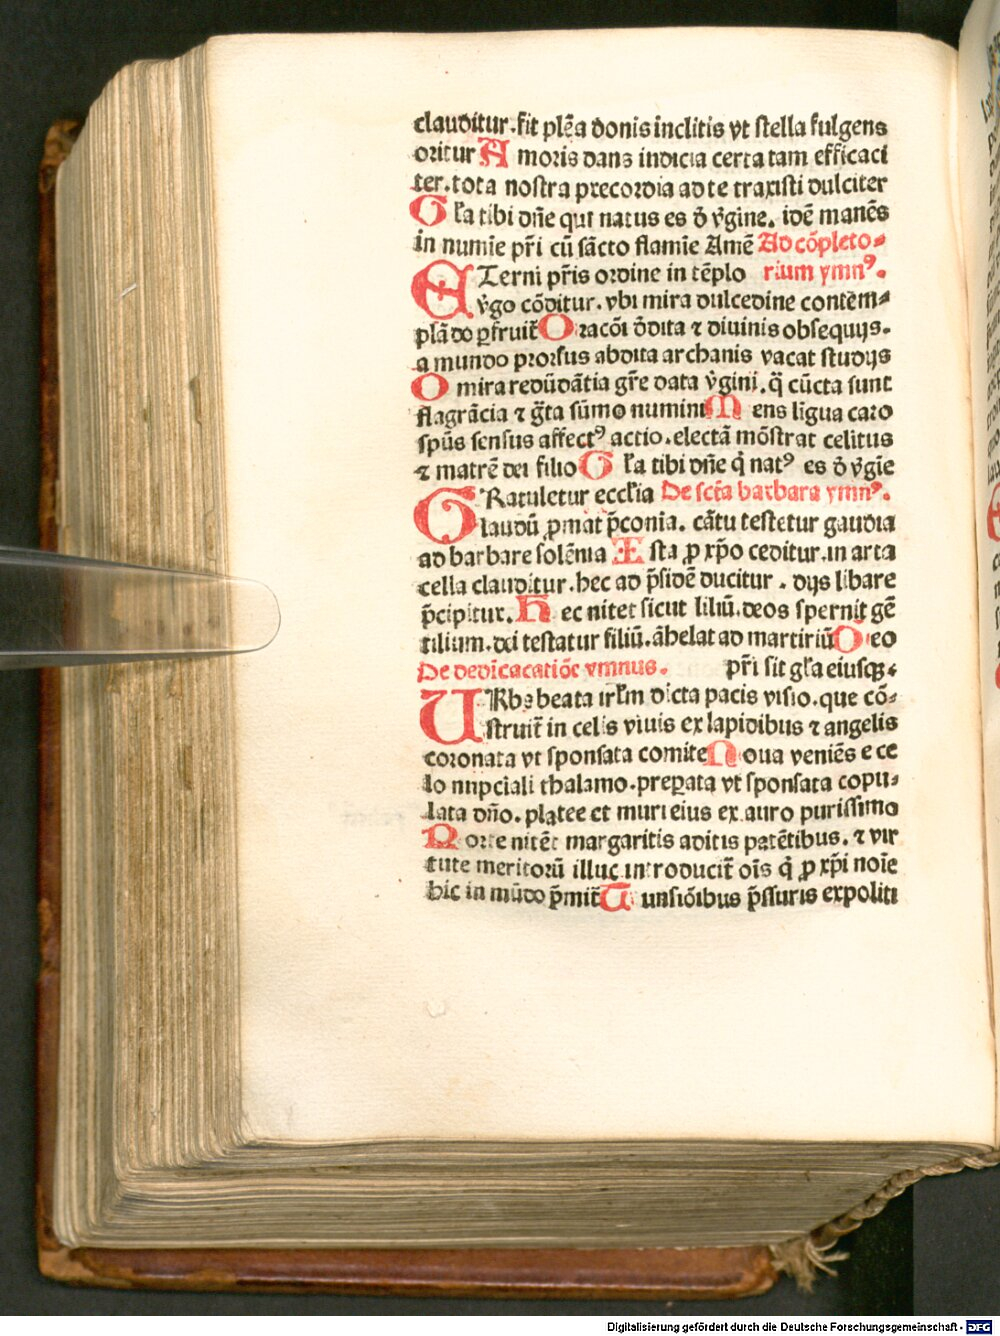 clauditur.fit plēa donis inclitis vt stella fulgens
oritur A moris dans indicia certa tam efficaci
ter.tota nostra precordia ad te traxisti dulciter
G ła tibi dñe qui natus es d̄ v̄gine. idē manēs
in numīe pr̄i cū sācto flamīe Amē Ad cōpleto⸗
ETerni pr̄is ordine in tēplo rium ymnꝰ.
v̄go cōditur. vbi mira dulcedine contem⸗
plādo ꝑfruit̄ O racōi d̄dita ⁊ diuinis obsequijs.
a mundo prorsus abdita archanis vacat studijs
O mira redūdātia gr̄e data v̄gini. q̄ cūcta sunt
flagrācia ⁊ g̃ta sūmo numini M ens līgua caro
sp̄us sensus affectꝰ actio.electā mōstrat celitus
⁊ matrē dei filio G ła tibi dñe q̇ natꝰ es d̄ v̄gīe
GRatuletur ecclīa De sctā barbara ymnꝰ.
laudū ꝓmat p̄conia. cātu testetur gaudia
ad barbare solēnia I sta ꝓ xp̄o ceditur.in arta
cella clauditur.hec ad p̄sidē ducitur. dijs libare
p̄cipitur. H ec nitet sicut liliū.deos spernit gē
tilium.dei testatur filiū.āhelat ad martiriū D eo
De dedīcacatiōe ymnus. pr̄i sit gła eiusqꝫ.
URbs beata irłm dicta pacis visio.que cō⸗
struit̄ in celis viuis ex lapidibus ⁊ angelis
coronata vt sponsata comite N oua veniēs e ce
lo nupciali thalamo.preꝑata vt sponsata copu⸗
lata dño. platee et muri eius ex auro purissimo
P orte nitēt margaritis aditis patētibus. ⁊ vir
tute meritorū illuc introducit̄ oīs q̇ ꝓ xp̄i noīe
hic in mūdo p̄mit̄ T unsiōibus p̄ssuris expoliti
Digitalisierung gefördert durch die Deutsche Forschungsgemeinschaft - DFG